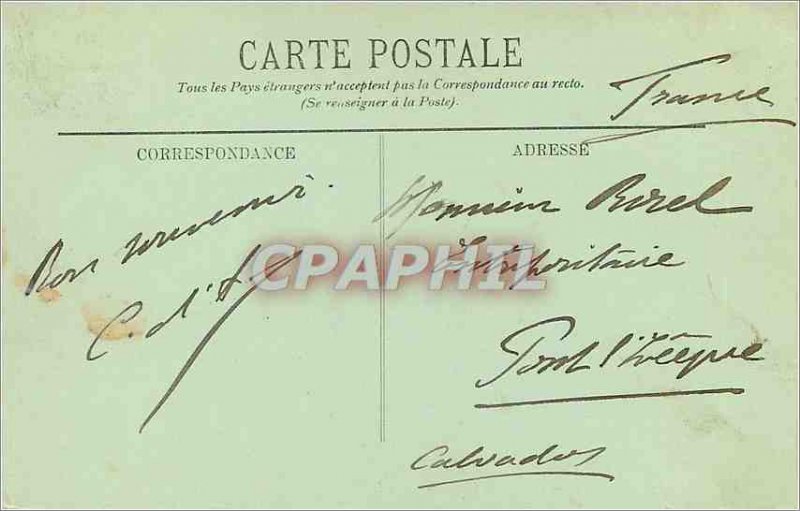 CARTE POSTALE
Tous les Pays étrangers n'acceptent pas la Correspondance au recto.
(Se renseigner à la Poste).
France
CORRESPONDANCE
Bon souvenir.
C. d'
ADRESSE
Monsieur Borel
Entrepositaire
Pont l'Evêque
Calvados
CPAPHIL